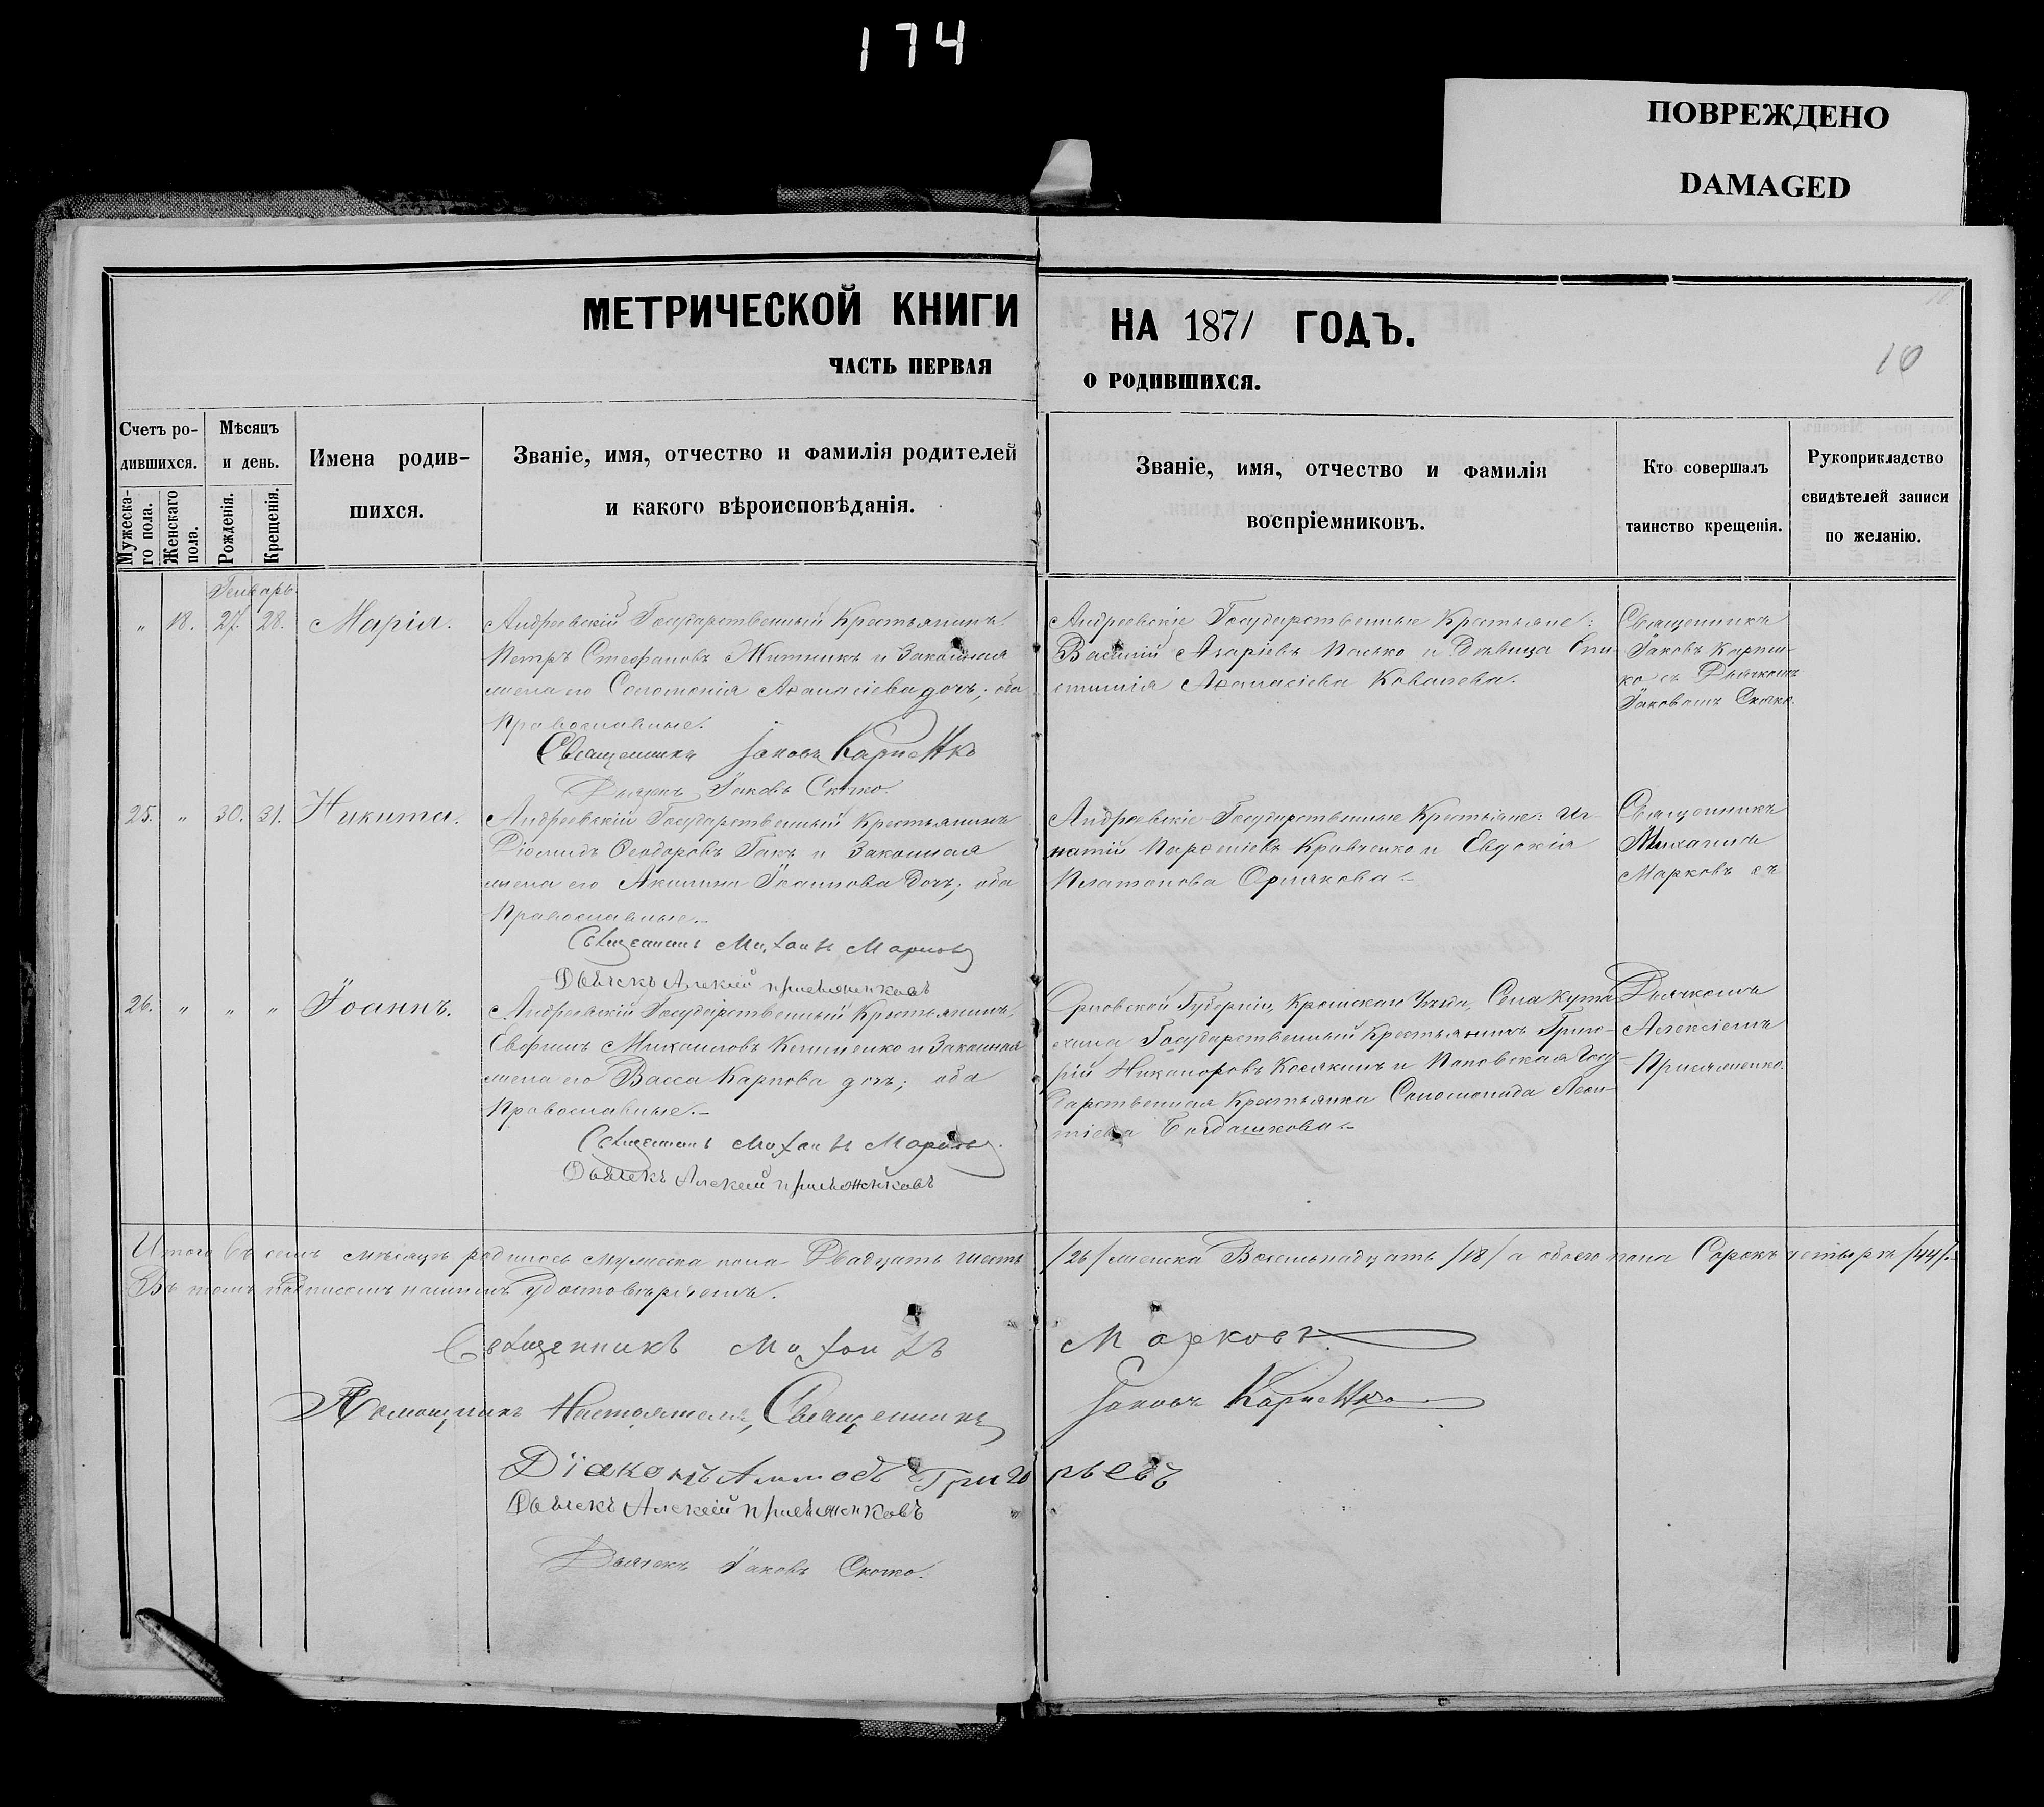 174
ПОВРЕЖДЕНО
DAMAGED
МЕТРИЧЕСКОЙ КНИГИ НА 1871 ГОДЪ.
10
ЧАСТЬ ПЕРВАЯ О РОДИВШИХСЯ.
Счетъ ро-
дившихся.
Мужеска-
го пола.
Женскаго
пола.
Мѣсяцъ
и день.
Рожденія.
Крещенія.
Имена родив-
шихся.
Званіе, имя, отчество и фамилія родителей
и какого вѣроисповѣданія.
Званіе, имя, отчество и фамилія
воспріемниковъ.
Кто совершалъ
таинство крещенія.
Рукоприкладство
свидѣтелей записи
по желанію.
Генварь.
„ 18. 27. 28. Марія.
Андреевскій Государственный Крестьянинъ
Петръ Стефановъ Житникъ и Законная
жена его Соломонія Аѳанасіева дочь; оба
Православные.
Священникъ Іаковъ Карпенко
Дьячекъ Іаковъ Скочко.
Андреевскіе Государственные Крестьяне:
Василій Азаріевъ Пасько и Дѣвица Епи-
стимія Аѳанасіева Ковалева.
Священникъ
Іаковъ Карпен-
ко съ Дьячкомъ
Іаковомъ Скочко.
25. „ 30. 31. Никита.
Андреевскій Государственный Крестьянинъ
Діомидъ Ѳеодоровъ Гакъ и Законная
жена его Акилина Іоаннова дочь; оба
Православные.-
Священникъ Михаилъ Марковъ
Дьячекъ Алексій
Андреевскіе Государственные Крестьяне: Иг-
натій Парѳеніевъ Кравченко и Евдокія
Платонова Орлякова.-
Священникъ
Михаилъ
Марковъ съ
26. „ „ „ Іоаннъ.
Андреевскій Государственный Крестьянинъ
Евфимъ Михаиловъ и Законная
жена его Васса Карпова дочь; оба
Православные.-
Священникъ Михаилъ Марковъ.
Дьячекъ Алексій
Орловской Губерніи, Кромскаго Уѣзда, Села
Государственный Крестьянинъ Григо-
рій Никаноровъ Косякинъ и Поповская Госу-
дарственная Крестьянка Соломонида Леон-
тіева
Дьячкомъ
Алексіемъ
Итого въ семъ мѣсяцѣ родилось мужеска пола Двадцать шесть /26/ женска Восемьнадцать /18/ а обоего пола Сорокъ четыре /44/.-
Въ томъ подписомъ нашимъ удостовѣряемъ.
Священникъ Михаилъ Марковъ.
Помощникъ Настоятеля, Священникъ Іаковъ Карпенко
Діаконъ Григорьевъ
Дьячекъ Алексій
Дьячекъ Іаковъ Скочко.